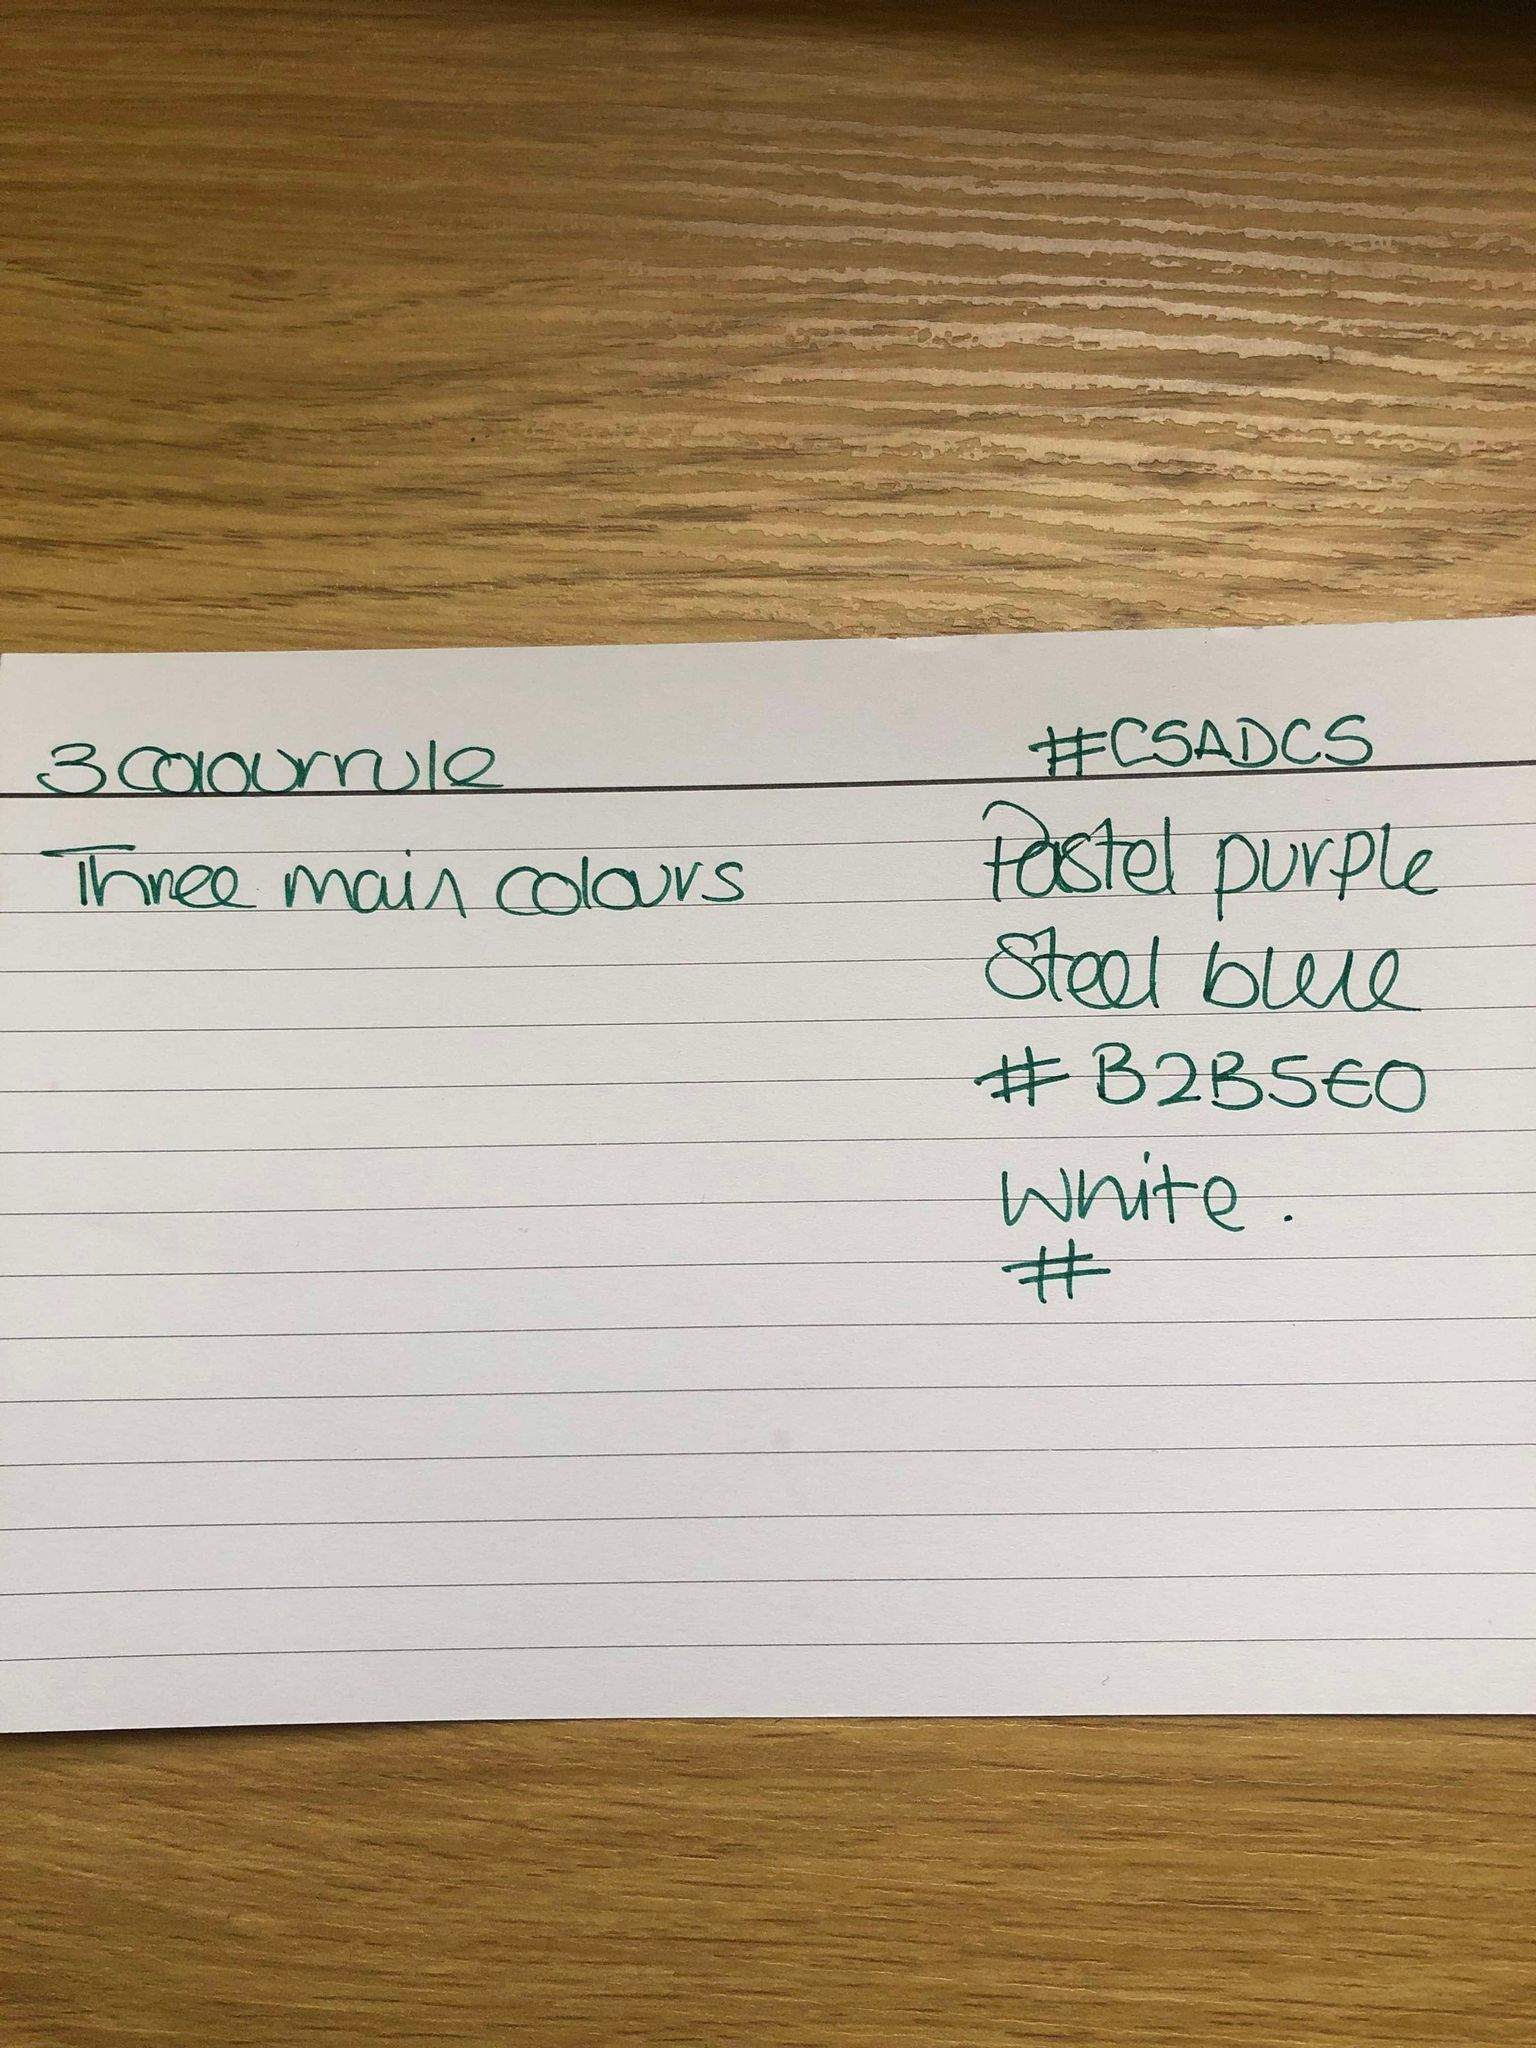 3 colour rule
#C5ADC5
Three main colours
Pastel purple
Steel blue
#B2B5E0
White.
#